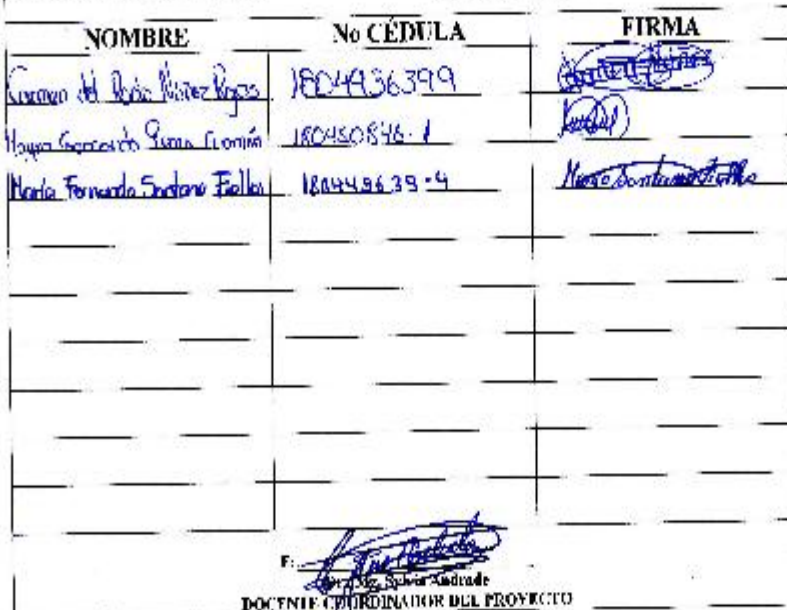 NOMBRE No CÉDULA FIRMA
Carmen del Rocío Núñez Rojas 1804936399 Núñez
Mayra 180450846-1
María Fernanda Santana Fiallos 180449639-4 María Santana Fiallos
F:
Mg. Sylvia Andrade
DOCENTE COORDINADOR DEL PROYECTO